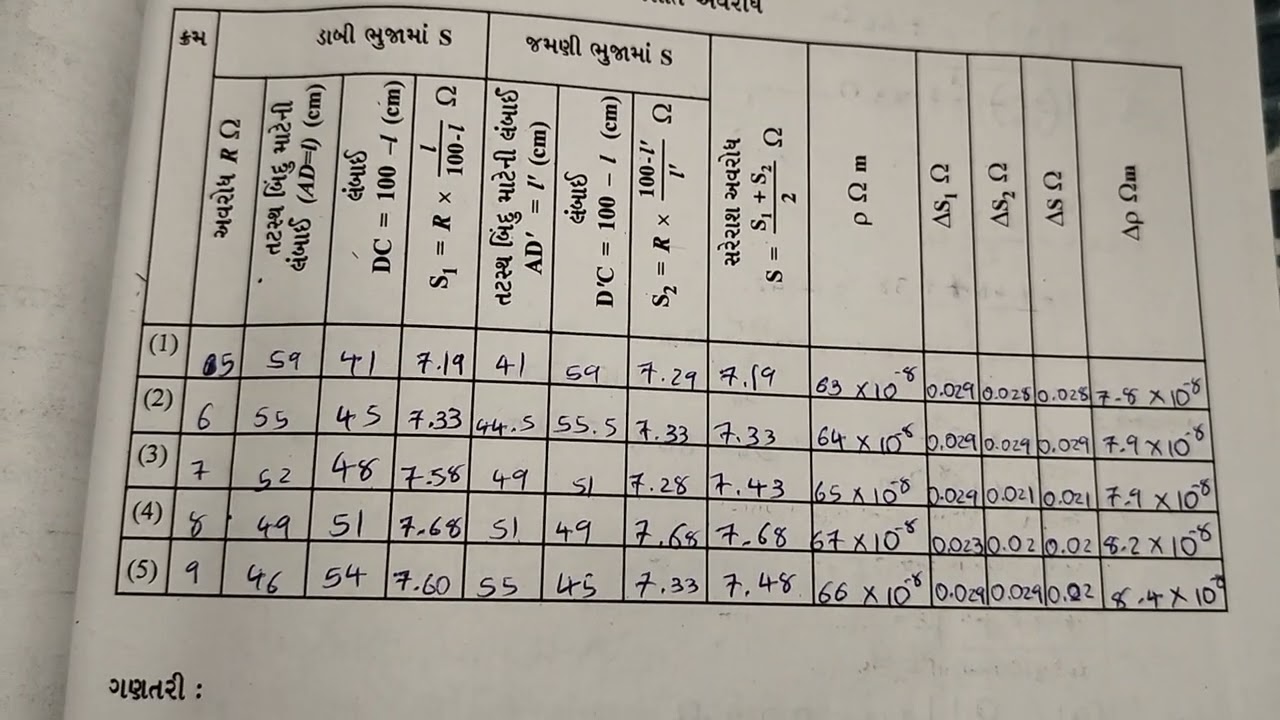 અવરોધ
ક્રમ
ડાબી ભુજામાં S
જમણી ભુજામાં S
અવરોધ R Ω
તટસ્થ બિંદુ માટેની લંબાઈ (AD=l) (cm)
લંબાઈ DC = 100 – l (cm)
S₁ = R × l / 100-l Ω
તટસ્થ બિંદુ માટેની લંબાઈ AD' = l' (cm)
લંબાઈ D'C = 100 – l (cm)
S₂ = R × 100-l' / l' Ω
સરેરાશ અવરોધ S = S₁ + S₂ / 2 Ω
ρ Ω m
ΔS₁ Ω
ΔS₂ Ω
ΔS Ω
Δρ Ωm
(1) 5 59 41 7.19 41 59 7.29 7.19 63 × 10⁻⁸ 0.029 0.028 0.028 7.8 × 10⁻⁸
(2) 6 55 45 7.33 44.5 55.5 7.33 7.33 64 × 10⁻⁸ 0.029 0.029 0.029 7.9 × 10⁻⁸
(3) 7 52 48 7.58 49 51 7.28 7.43 65 × 10⁻⁸ 0.029 0.021 0.021 7.9 × 10⁻⁸
(4) 8 49 51 7.68 51 49 7.68 7.68 67 × 10⁻⁸ 0.023 0.02 0.02 8.2 × 10⁻⁸
(5) 9 46 54 7.60 55 45 7.33 7.48 66 × 10⁻⁸ 0.029 0.029 0.02 8.4 × 10
ગણતરી :